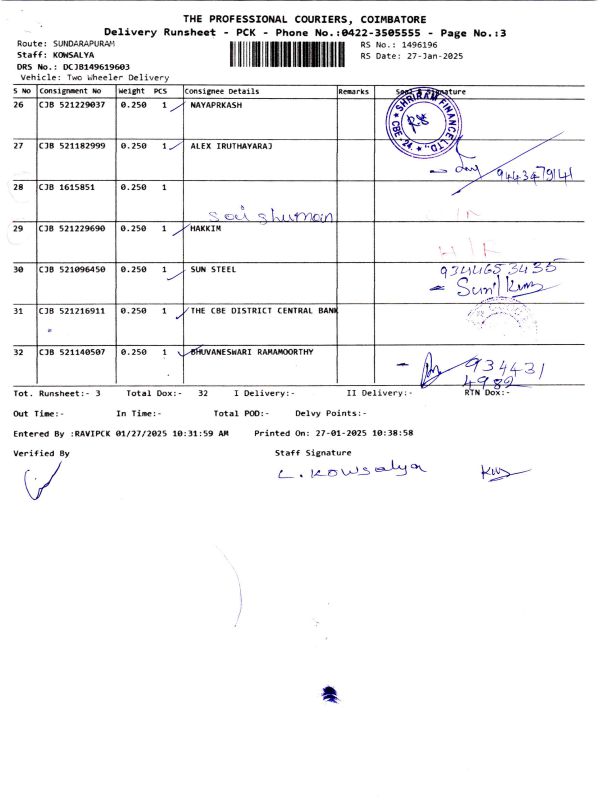 THE PROFESSIONAL COURIERS, COIMBATORE
Delivery Runsheet - PCK - Phone No.:0422-3505555 - Page No.:3
Route: SUNDARAPURAM
RS No.: 1496196
Staff: KOWSALYA
RS Date: 27-Jan-2025
DRS No.: DCJB149619603
Vehicle: Two Wheeler Delivery
S No Consignment No Weight PCS Consignee Details Remarks Seal & Signature
26 CJB 521229037 0.250 1 NAYAPRKASH
SHRIRAM FINANCE LTD., CBE-24.
27 CJB 521182999 0.250 1 ALEX IRUTHAYARAJ
9443479141
28 CJB 1615851 0.250 1
29 CJB 521229690 0.250 1 HAKKIM
30 CJB 521096450 0.250 1 SUN STEEL
9344653435
31 CJB 521216911 0.250 1 THE CBE DISTRICT CENTRAL BANK
32 CJB 521140507 0.250 1 BHUVANESWARI RAMAMOORTHY
934431
4982
Tot. Runsheet:- 3 Total Dox:- 32 I Delivery:- II Delivery:- RTN Dox:-
Out Time:- In Time:- Total POD:- Delvy Points:-
Entered By :RAVIPCK 01/27/2025 10:31:59 AM Printed On: 27-01-2025 10:38:58
Verified By Staff Signature
L. Kowsalya